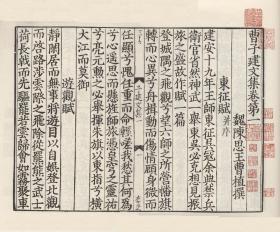 曹子建文集卷第一
魏陳思王曹植撰
東征賦 并序
建安十九年王師東征吳寇余典禁兵
衛官省然神武一舉東夷必克想見振
旅之盛故作賦一篇
登城隅之飛觀兮望六師之所營幡旗
轉而心異兮舟楫動而傷情顧身微而
任顯兮愧任重而命輕嗟我愁其何爲
兮心遥思而懸旌師旅憑皇穹之靈祐
兮亮元勳之必舉揮朱旗以東指兮橫
大江而莫御
遊觀賦
靜閑居而無事將遊目以自娛登北觀
而啓路涉雲際之飛除從羆熊之武士
荷長戟而先驅罷若雲歸會如霧聚車